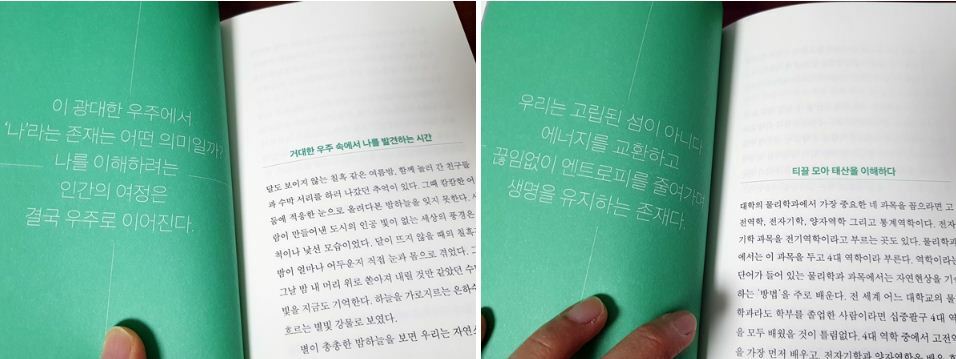 이 광대한 우주에서
'나'라는 존재는 어떤 의미일까?
나를 이해하려는
인간의 여정은
결국 우주로 이어진다.
거대한 우주 속에서 나를 발견하는 시간
달도 보이지 않는 칠흑 같은 여름밤, 함께 놀러 간 친구들
과 수박 서리를 하러 나갔던 추억이 있다. 그때 캄캄한 어
둠에 적응한 눈으로 올려다본 밤하늘을 잊지 못한다. 사
람이 만들어낸 도시의 인공 빛이 없는 세상의 풍경은
척이나 낯선 모습이었다. 달이 뜨지 않을 때의 칠흑
밤이 얼마나 어두운지 직접 눈과 몸으로 겪었다. 그
그날 밤 내 머리 위로 쏟아져 내릴 것만 같았던 수
빛을 지금도 기억한다. 하늘을 가로지르는 은하수
흐르는 별빛 강물로 보였다.
별이 총총한 밤하늘을 보면 우리는 자연스
우리는 고립된 섬이 아니다.
에너지를 교환하고
끊임없이 엔트로피를 줄여가며
생명을 유지하는 존재다.
티끌 모아 태산을 이해하다
대학의 물리학과에서 가장 중요한 네 과목을 꼽으라면 고
전역학, 전자기학, 양자역학 그리고 통계역학이다. 전자
기학 과목을 전기역학이라고 부르는 곳도 있다. 물리학과
에서는 이 과목을 두고 4대 역학이라 부른다. 역학이라는
단어가 들어 있는 물리학과 과목에서는 자연현상을 기
하는 '방법'을 주로 배운다. 전 세계 어느 대학교의 물
학과라도 학부를 졸업한 사람이라면 십중팔구 4대 역
을 모두 배웠을 것이 틀림없다. 4대 역학 중에서 고전역
을 가장 먼저 배우고, 전자기학과 양자역학을 배운